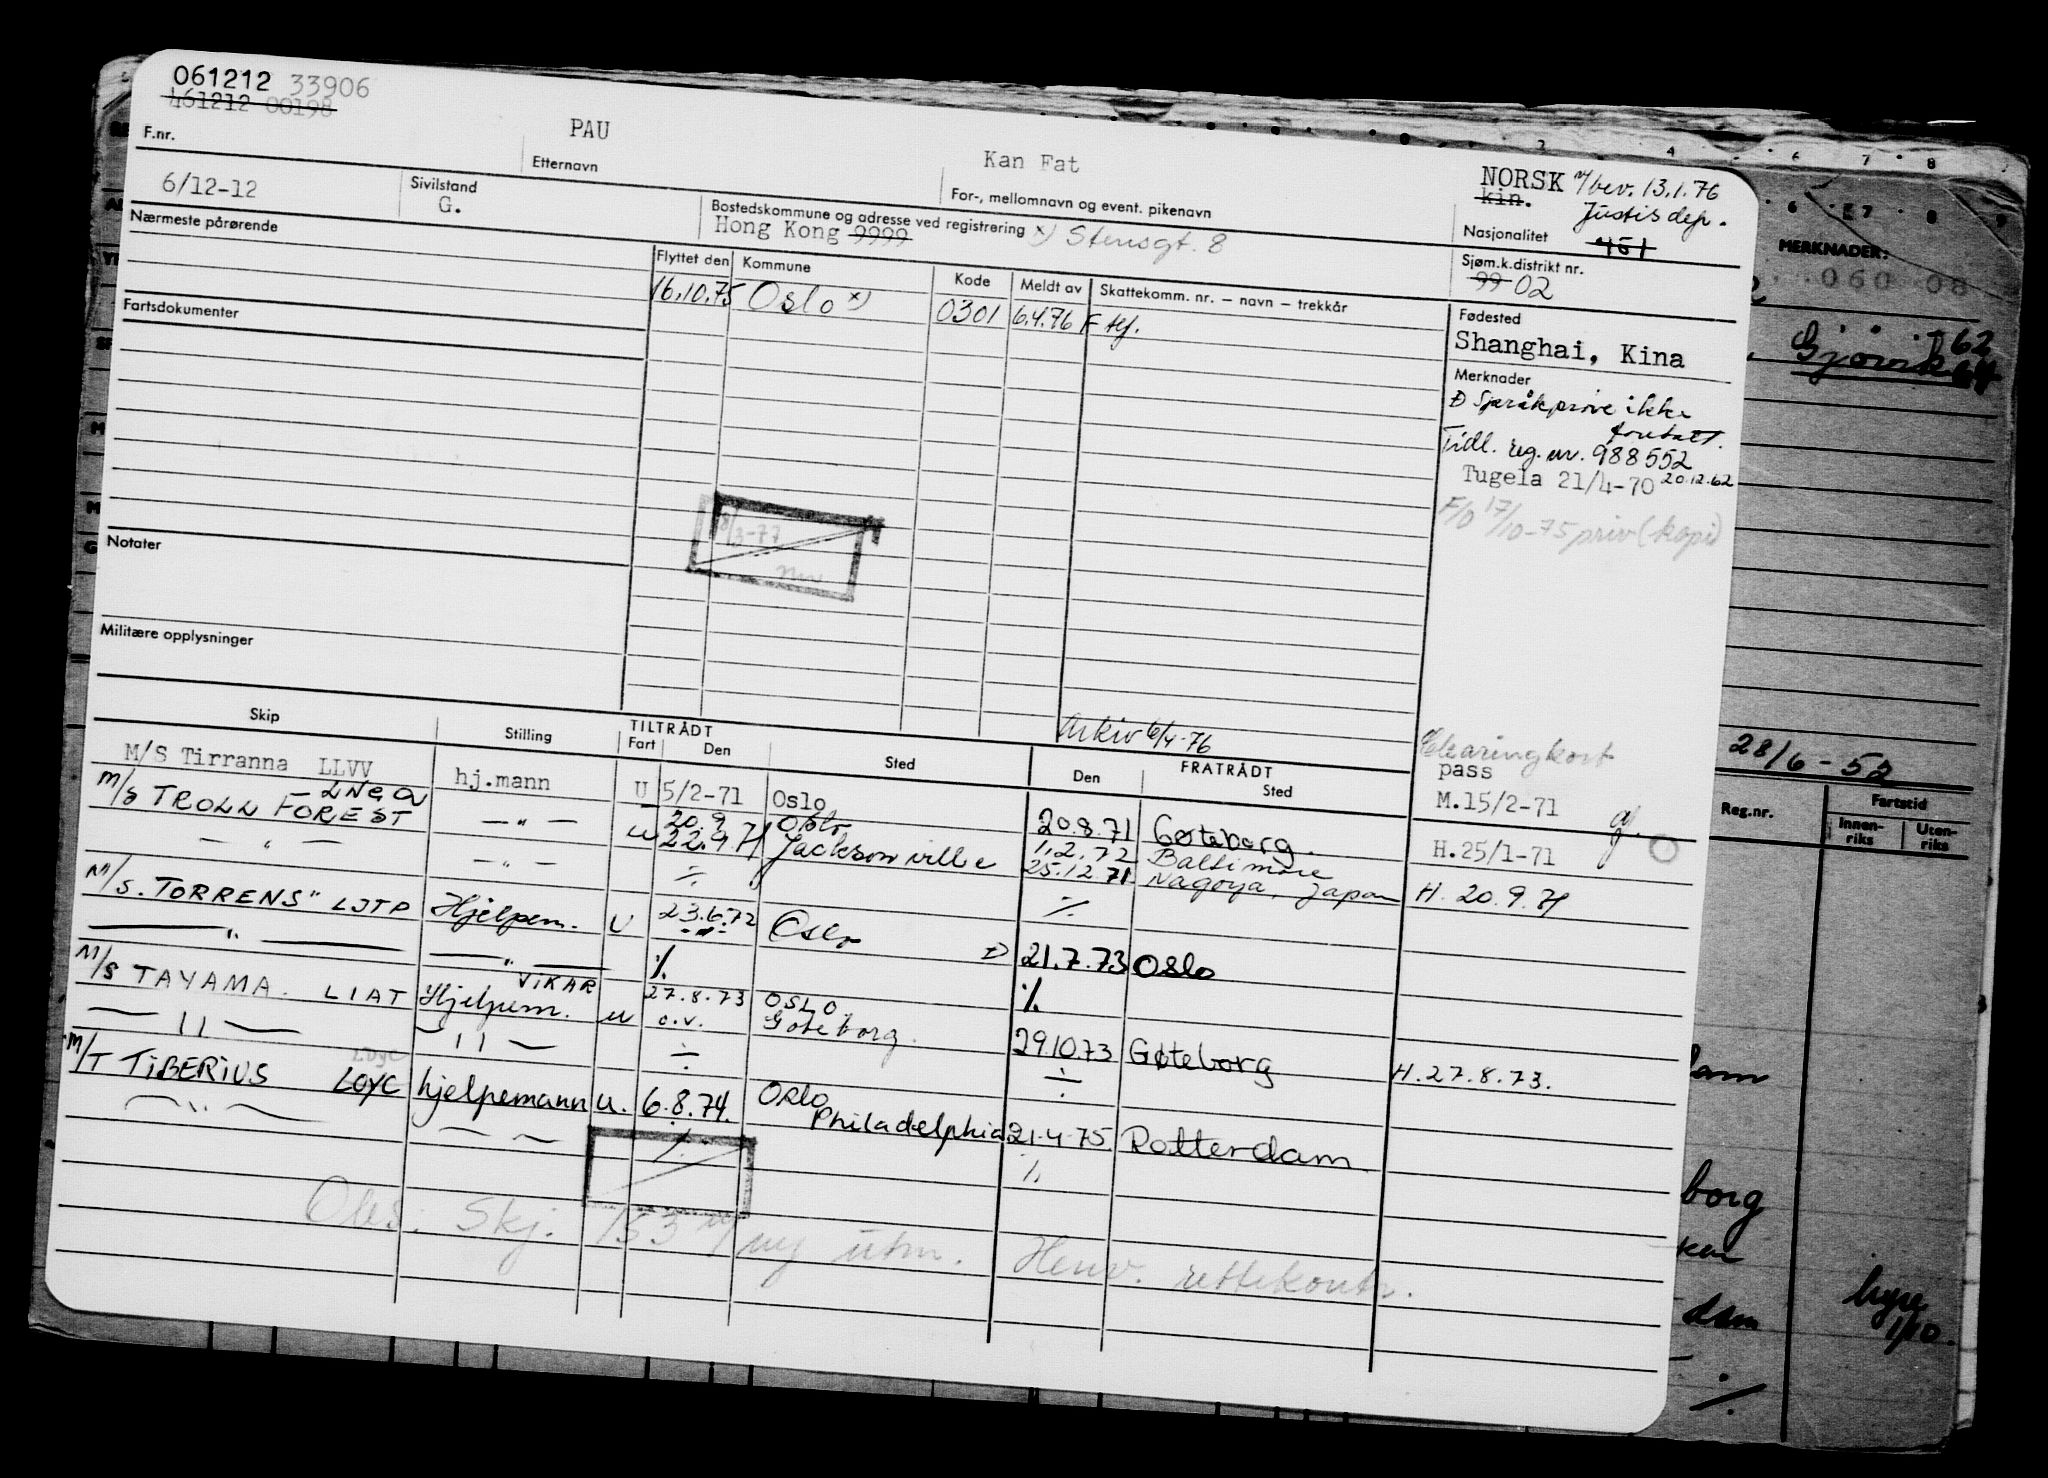 061212 33906
461212 00198
F.nr.
PAU
Etternavn
Kan Fat
For-, mellomnavn og event. pikenavn
NORSK m/bev. 13.1.76
kin. Justisdep.
Nasjonalitet
6/12-12
Sivilstand
G.
Bostedskommune og adresse ved registrering x) Stensgt. 8
Hong Kong 9999
Nærmeste pårørende
Flyttet den Kommune Kode Meldt av Skattekomm. nr. – navn – trekkår
16.10.75 Oslo x) 0301 6.4.76 F
Sjøm.k.distrikt nr.
99 02
Fartsdokumenter
Fødested
Shanghai, Kina
Merknader
Språkprøve ikke
foretatt.
Tidl. reg. nr. 988552
20.12.62
Tugela 21/4-70
F/O 17/10-75 priv (kopi)
8/3-77
Notater
Militære opplysninger
Arkiv 6/4-76
Clearingkort
pass
M.15/2-71
H.25/1-71
H. 20.9.71
H. 27.8.73.
Skip Stilling TILTRÅDT Fart Den Sted FRATRÅDT Den Sted
M/S Tirranna LLVV hj.mann U 5/2-71 Oslo 20.8.71 Gøteborg.
M/S TROLL FOREST LNGO — " — 20.9 Oslo 1.2.72 Baltimore
— " — — " — u 22.9.71 Jacksonville 25.12.71 Nagoya, Japan
M/S. TORRENS" LJTP Hjelpem. U 23.6.72 Oslo 21.7.73 Oslo
— " — — " — ./. ./.
M/S TAYAMA. LIAT Hjelpem. VIKAR u 27.8.73 OSLO
— 11 — — 11 — o.v. Gøteborg. 29.10.73 Gøteborg
M/T TIBERIUS LDYC hjelpemann u. 6.8.74. Oslo
Philadelphia 21.4.75 Rotterdam.
Obs. Skj. 153 m/ny utm. Henv. rettekontr.
MERKNADER:
060 08
Gjøvik 62
28/6-52
Reg.nr. Fartstid
Innen-
riks
Uten-
riks
dam
borg
dam
hyre
1/10.